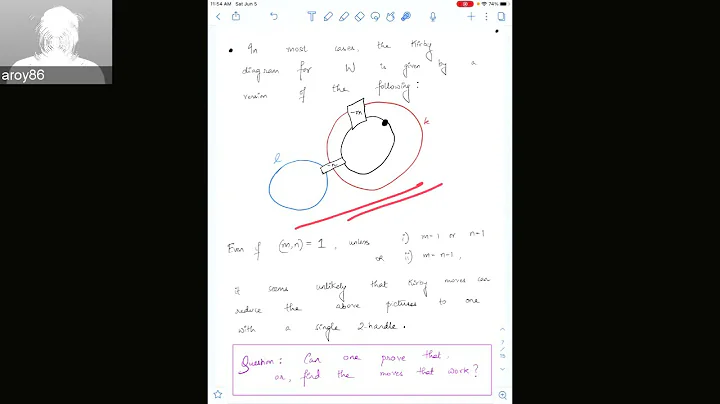 11:54 AM Sat Jun 5
74%
• In most cases, the Kirby
diagram for W is given by a
version of the following:
-m
k
l
-n
Even if (m,n) = 1, unless i) m=1 or n=1
or ii) m = n-1,
it seems unlikely that Kirby moves can
reduce the above pictures to one
with a single 2-handle.
Question: Can one prove that,
or, find the moves that work?
aroy86